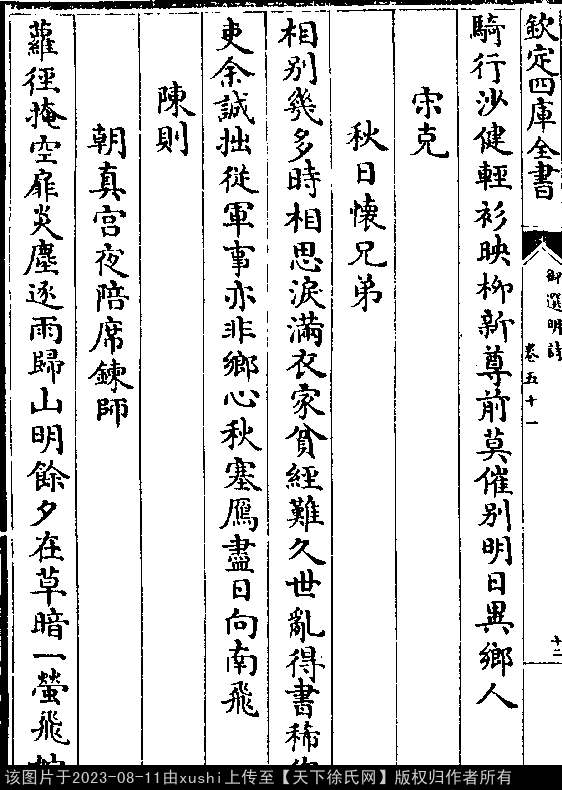 欽定四庫全書
御選明詩
卷五十一
十二
騎行沙健輕衫映柳新尊前莫催别明日異鄉人
宋克
秋日懷兄弟
相别幾多時相思淚滿衣家貧經難久世亂得書稀
吏余誠拙從軍事亦非鄉心秋塞鴈盡日向南飛
陳則
朝真宫夜陪席鍊師
蘿徑掩空扉炎塵逐雨歸山明餘夕在草暗一螢飛
该图片于2023-08-11由xushi上传至【天下徐氏网】版权归作者所有